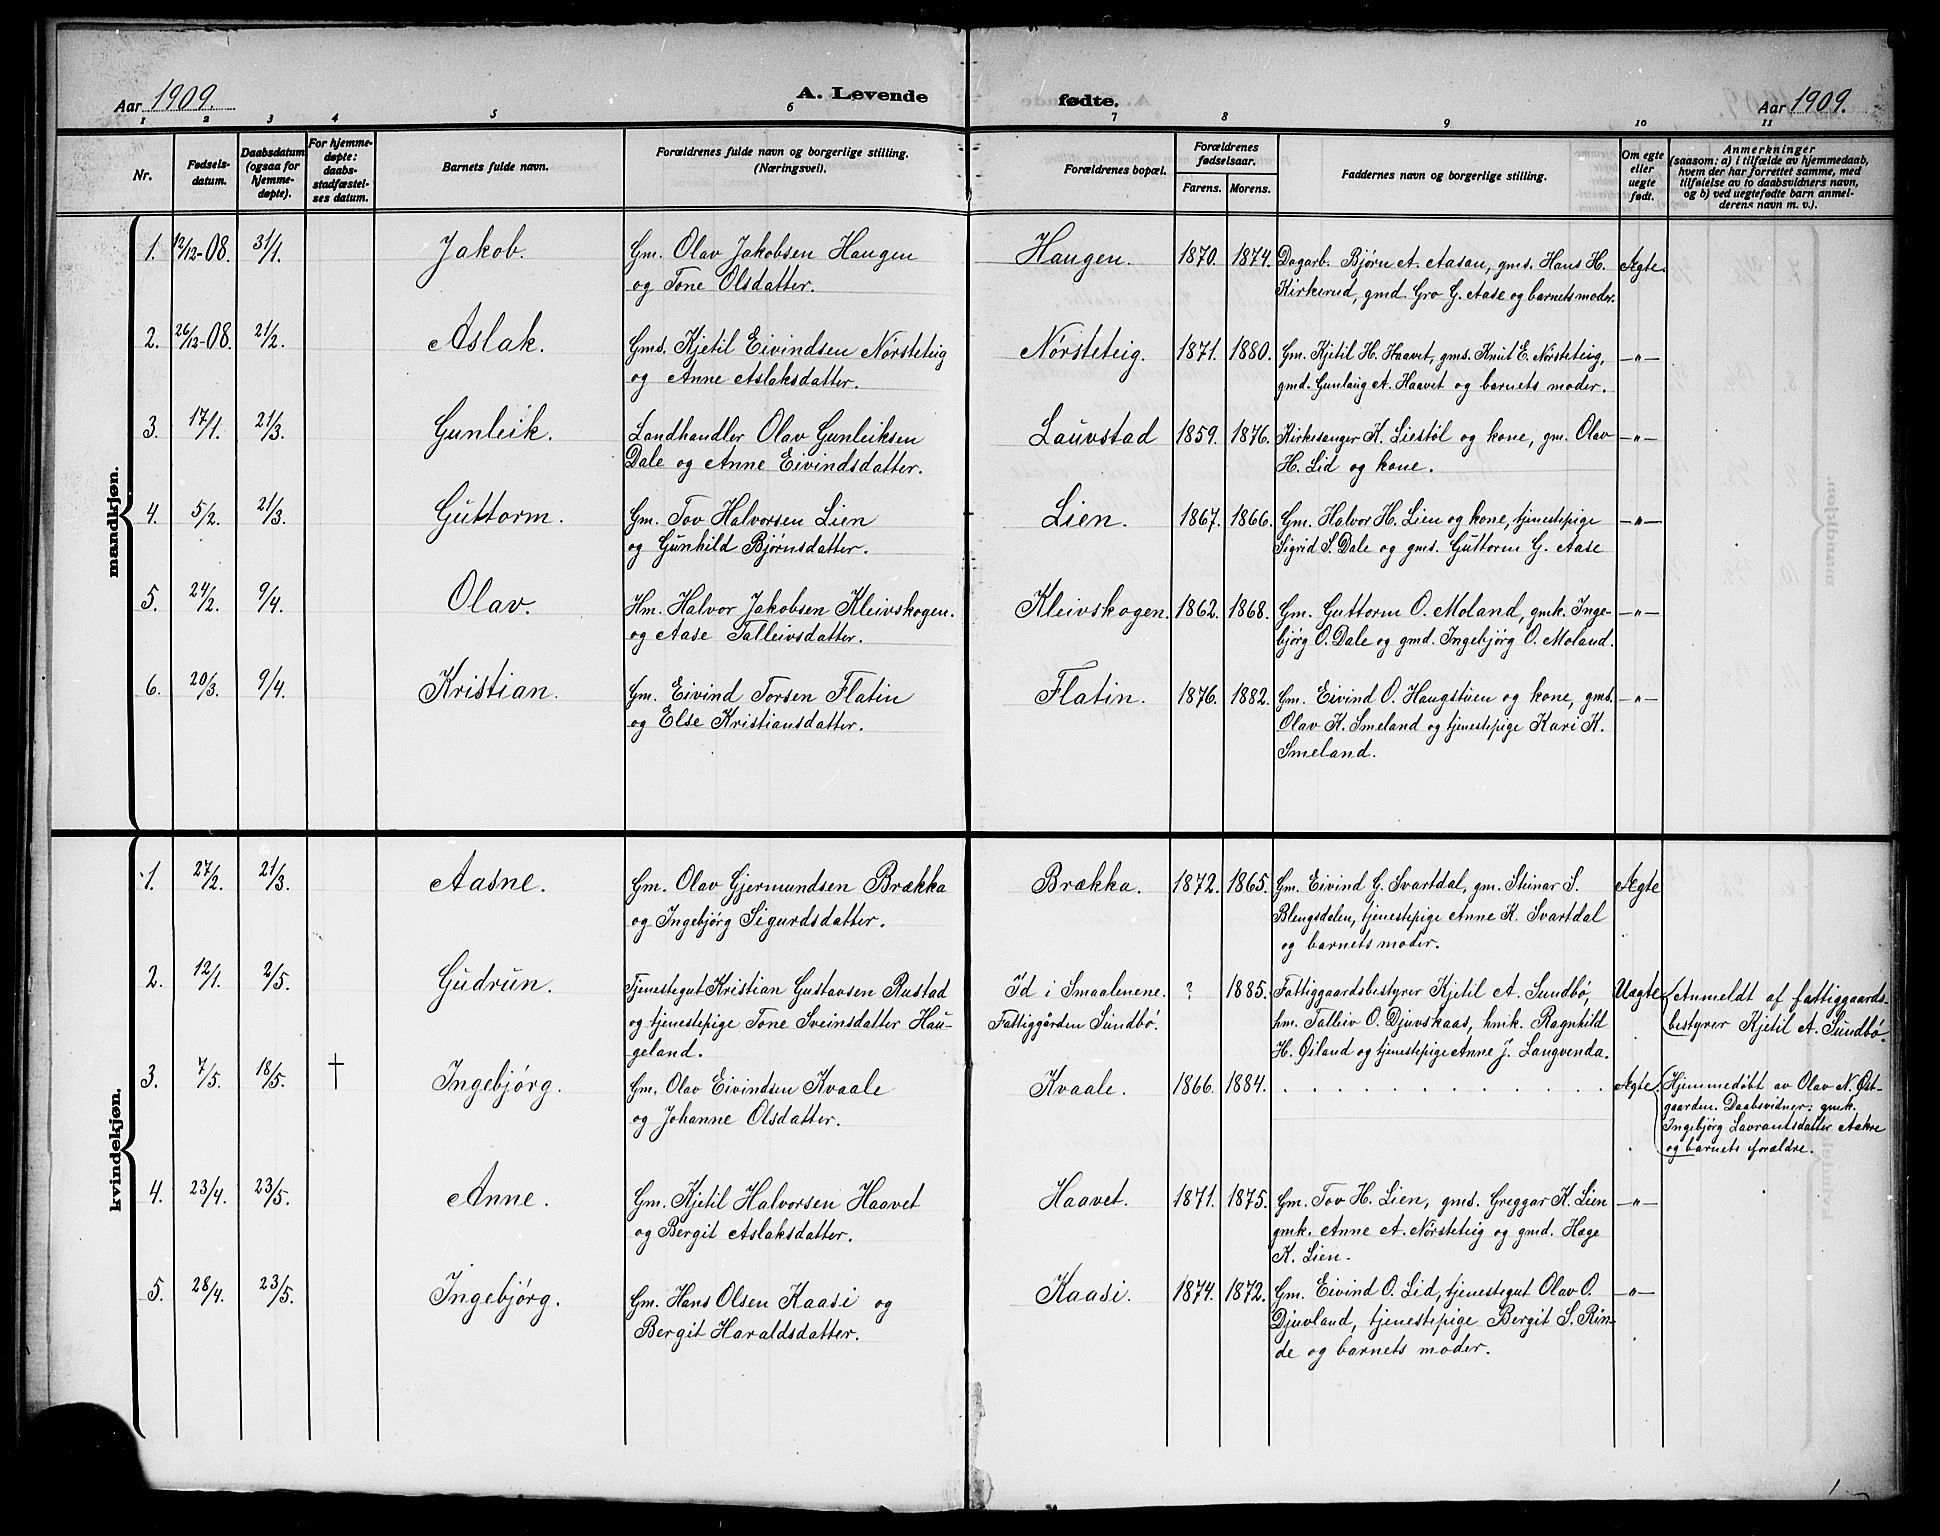 Aar 1909.
A. Levende
fødte.
Aar 1909.
1 2 3 4 5 6 7 8 9 10 11
Nr.
Fødsels-
datum.
Daabsdatum
(ogsaa for
hjemme-
døpte).
For hjemme-
døpte:
daabs-
stadfæstel-
ses datum.
Barnets fulde navn.
Forældrenes fulde navn og borgerlige stilling.
(Næringsvei).
Forældrenes bopæl.
Forældrenes
fødselsaar.
Farens. Morens.
Faddernes navn og borgerlige stilling.
Om egte
eller
uegte
født.
Anmerkninger
(saasom: a) i tilfælde av hjemmedaab,
hvem der har forrettet samme, med
tilføielse av to daabsvidners navn,
og b) ved uegtefødte barn anmel-
derens navn m. v.).
mandkjøn.
1. 12/12-08. 31/1. Jakob. Gm. Olav Jakobsen Haugen Haugen. 1870. 1874. Dagarb. Bjørn A. Aasan, gms. Hans H. Ægte.
og Tone Olsdatter. Kirkerud, gmd. Gro G. Aase og barnets moder.
2. 26/12-08. 21/2. Aslak. Gms. Kjetil Eivindsen Nørsteteig Nørsteteig. 1871. 1880. Gm. Kjetil H. Haavet, gms. Knut E. Nørsteteig, —"—
og Anne Aslaksdatter. gmd. Gunlaug A. Haavet og barnets moder.
3. 17/1. 21/3. Gunleik. Landhandler Olav Gunleiksen Lauvstad 1859. 1876. Kirkesanger K. Liestøl og kone, gm. Olav —"—
Dale og Anne Eivindsdatter. H. Lid og kone.
4. 5/2. 21/3. Guttorm. Gm. Tov Halvorsen Lien Lien. 1867. 1866. Gm. Halvor H. Lien og kone, tjenestepige —"—
og Gunhild Bjørnsdatter. Sigrid S. Dale og gms. Guttorm G. Aase
5. 24/2. 9/4. Olav. Hm. Halvor Jakobsen Kleivskogen. Kleivskogen. 1862. 1868. Gm. Guttorm O. Moland, gmk. Inge- —"—
og Aase Talleivsdatter. bjørg O. Dale og gmd. Ingebjørg O. Moland.
6. 20/3. 9/4. Kristian. Gm. Eivind Torsen Flatin Flatin. 1876. 1882. Gm. Eivind O. Haugstuen og kone, gms. —"—
og Else Kristiansdatter. Olav K. Smeland og tjenestepige Kari K.
Smeland.
kvindekjøn.
1. 27/2. 21/3. Aasne. Gm. Olav Gjermundsen Brækka Brækka. 1872. 1865. Gm. Eivind G. Svartdal, gm. Steinar S. Ægte
og Ingebjørg Sigurdsdatter. Blengsdalen, tjenestepige Anne K. Svartdal
og barnets moder.
2. 12/1. 2/5. Gudrun. Tjenestegut Kristian Gustavsen Rustad Id i Smaalenene. ? 1885. Fattiggaardsbestyrer Kjetil A. Sundbø, Uægte Anmeldt af fattiggaards-
og tjenestepige Tone Sveinsdatter Hau- Fattiggården Sundbø. hm. Talleiv O. Djuvskaas, hmk. Ragnhild bestyrer Kjetil A. Sundbø.
geland. H. Øiland og tjenestepige Anne J. Langvenda.
3. 7/5. 18/5. † Ingebjørg. Gm. Olav Eivindsen Kvaale Kvaale. 1866. 1884. . . . . . . . . . . Ægte. Hjemmedøbt av Olav N. Øst-
og Johanne Olsdatter. gaarden. Daabsvidner: gmk.
Ingebjørg Lavrantsdatter Aakre
og barnets forældre.
4. 23/4. 23/5. Anne. Gm. Kjetil Halvorsen Haavet Haavet. 1871. 1875. Gm. Tov H. Lien, gms. Greggar K. Lien —"—
og Bergit Aslaksdatter. gmk. Anne A. Nørsteteig og gmd. Hæge
K. Lien.
5. 28/4. 23/5. Ingebjørg. Gm. Hans Olsen Kaasi og Kaasi. 1874. 1872. Gm. Eivind O. Lid, tjenestegut Olav O. —"—
Bergit Haraldsdatter. Djuvland, tjenestepige Bergit S. Rin-
de og barnets moder.